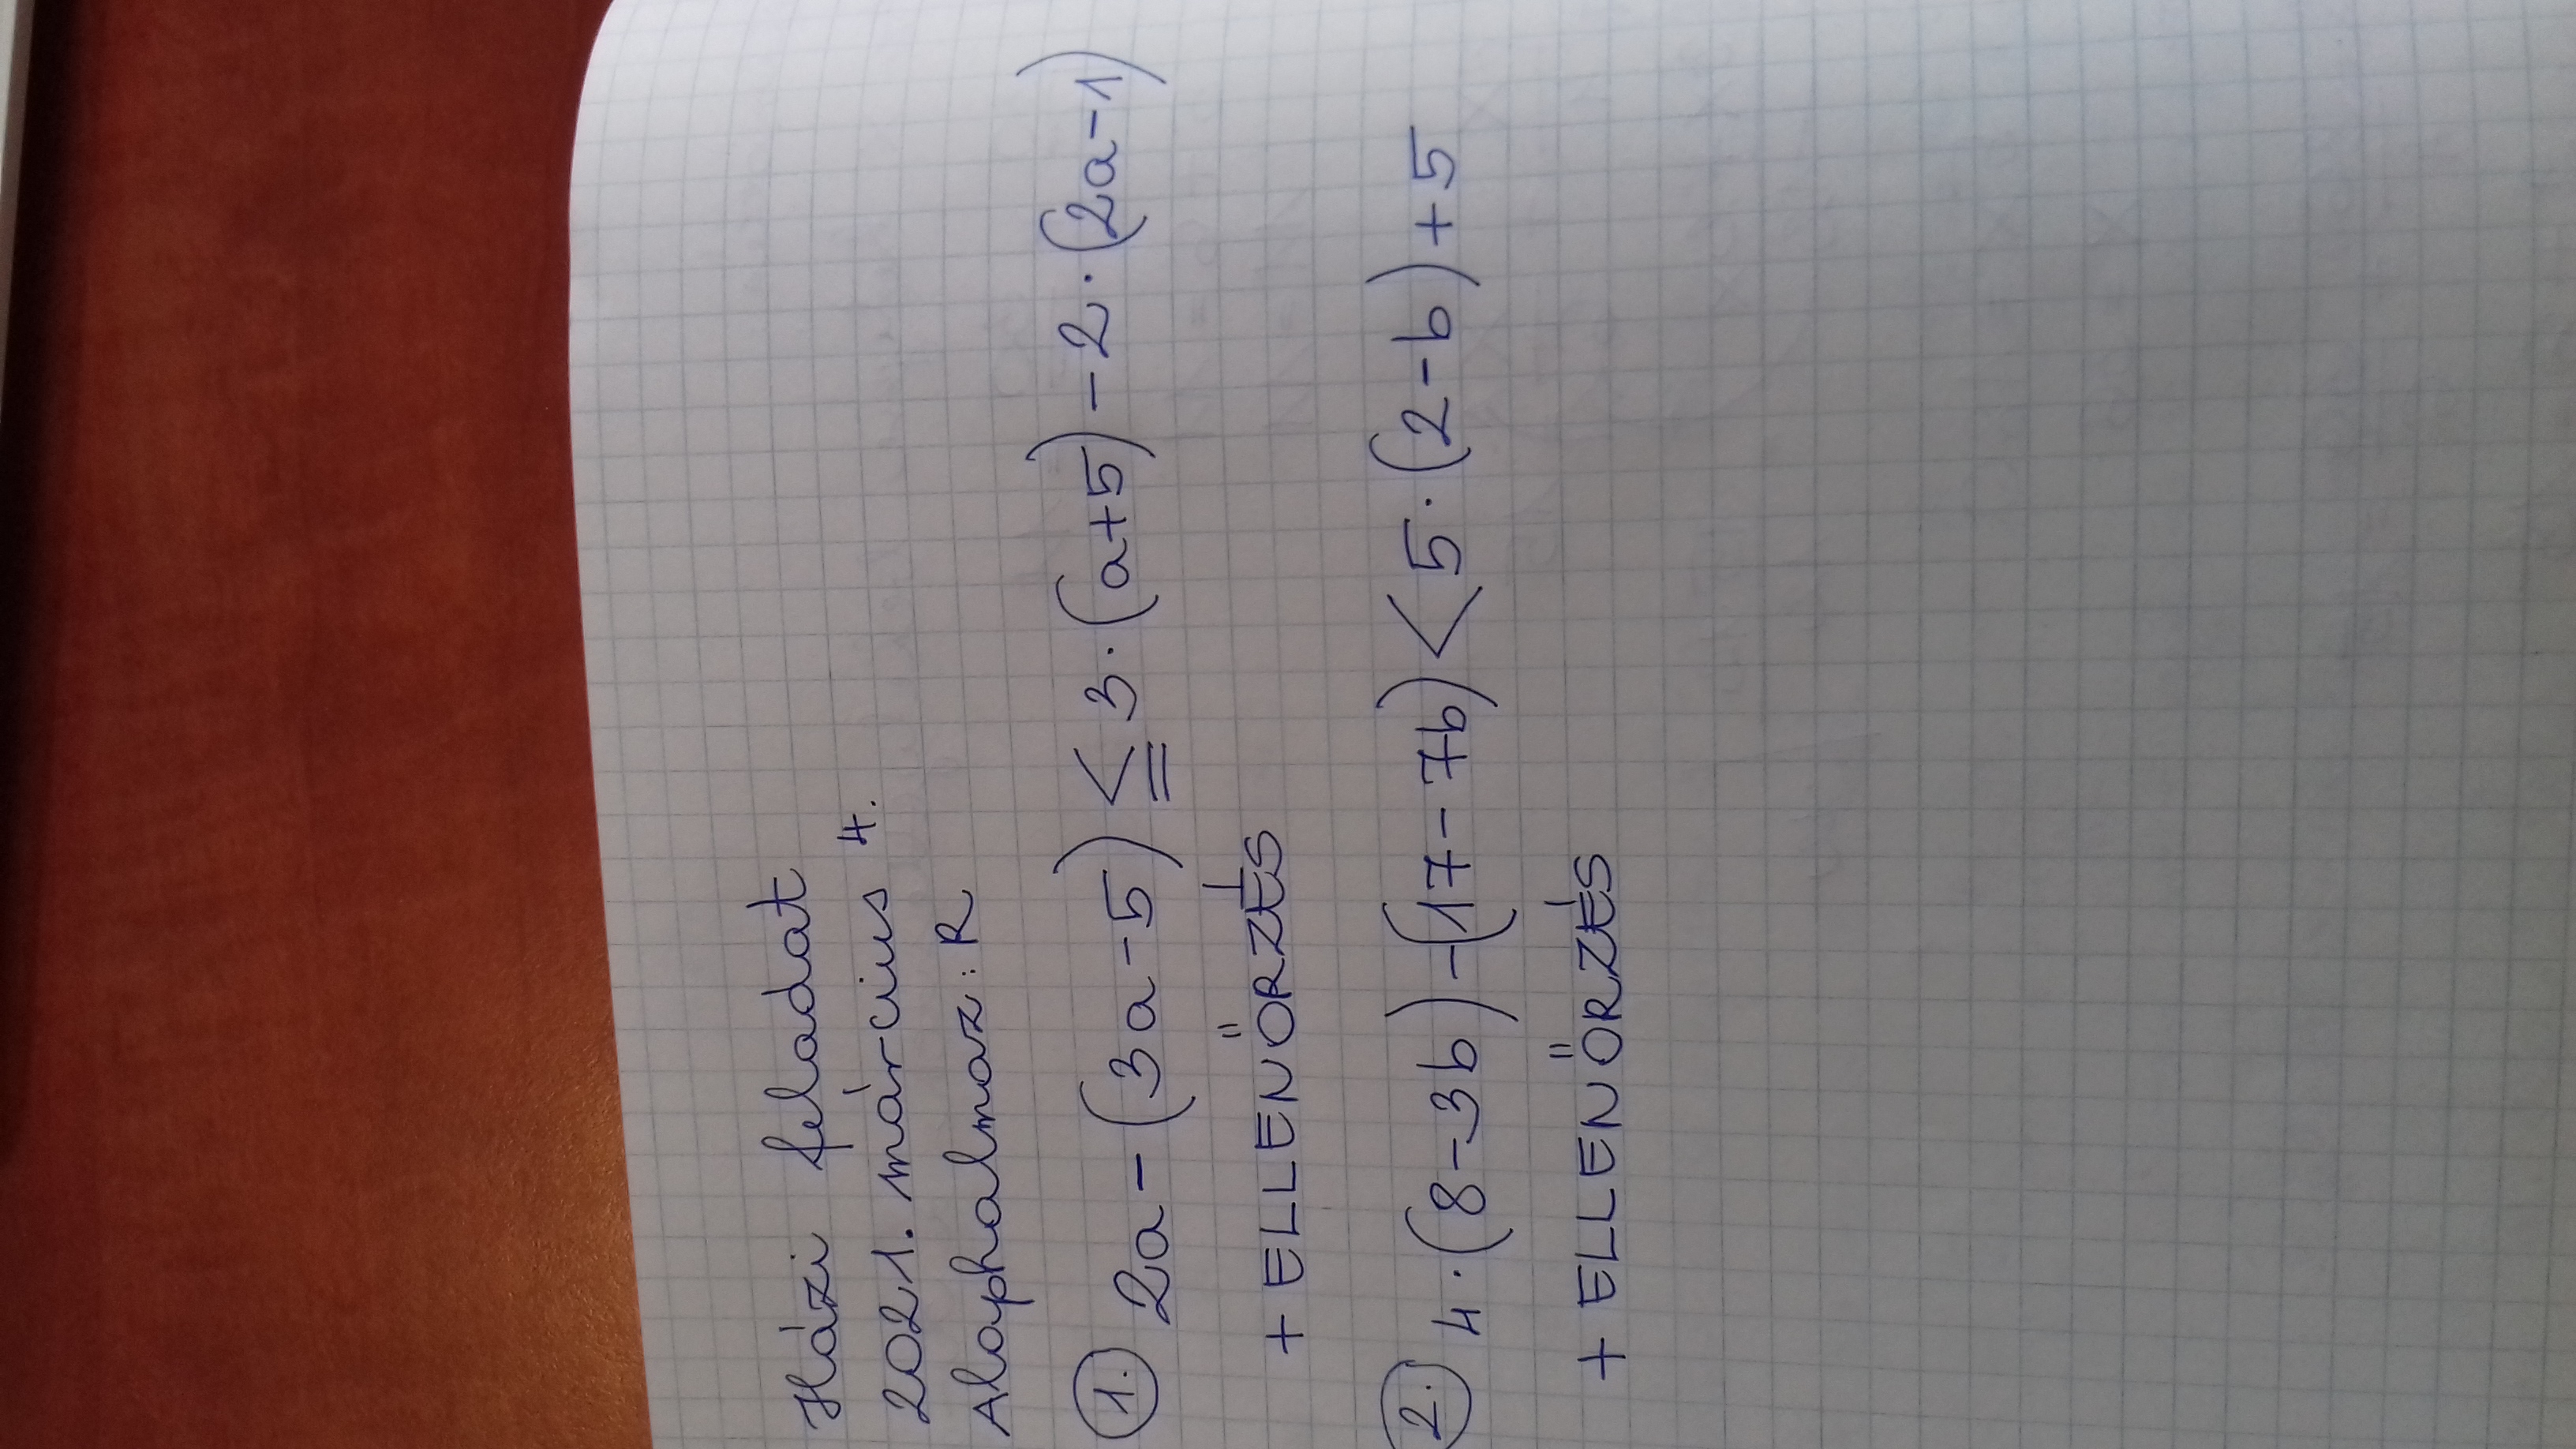 Házi feladat
2021. március 4.
Alaphalmaz: R
1. 2a - (3a - 5) ≦ 3 · (a+5) - 2 · (2a - 1)
+ ELLENŐRZÉS
2. 4 · (8 - 3b) - (17 - 7b) < 5 · (2 - b) + 5
+ ELLENŐRZÉS